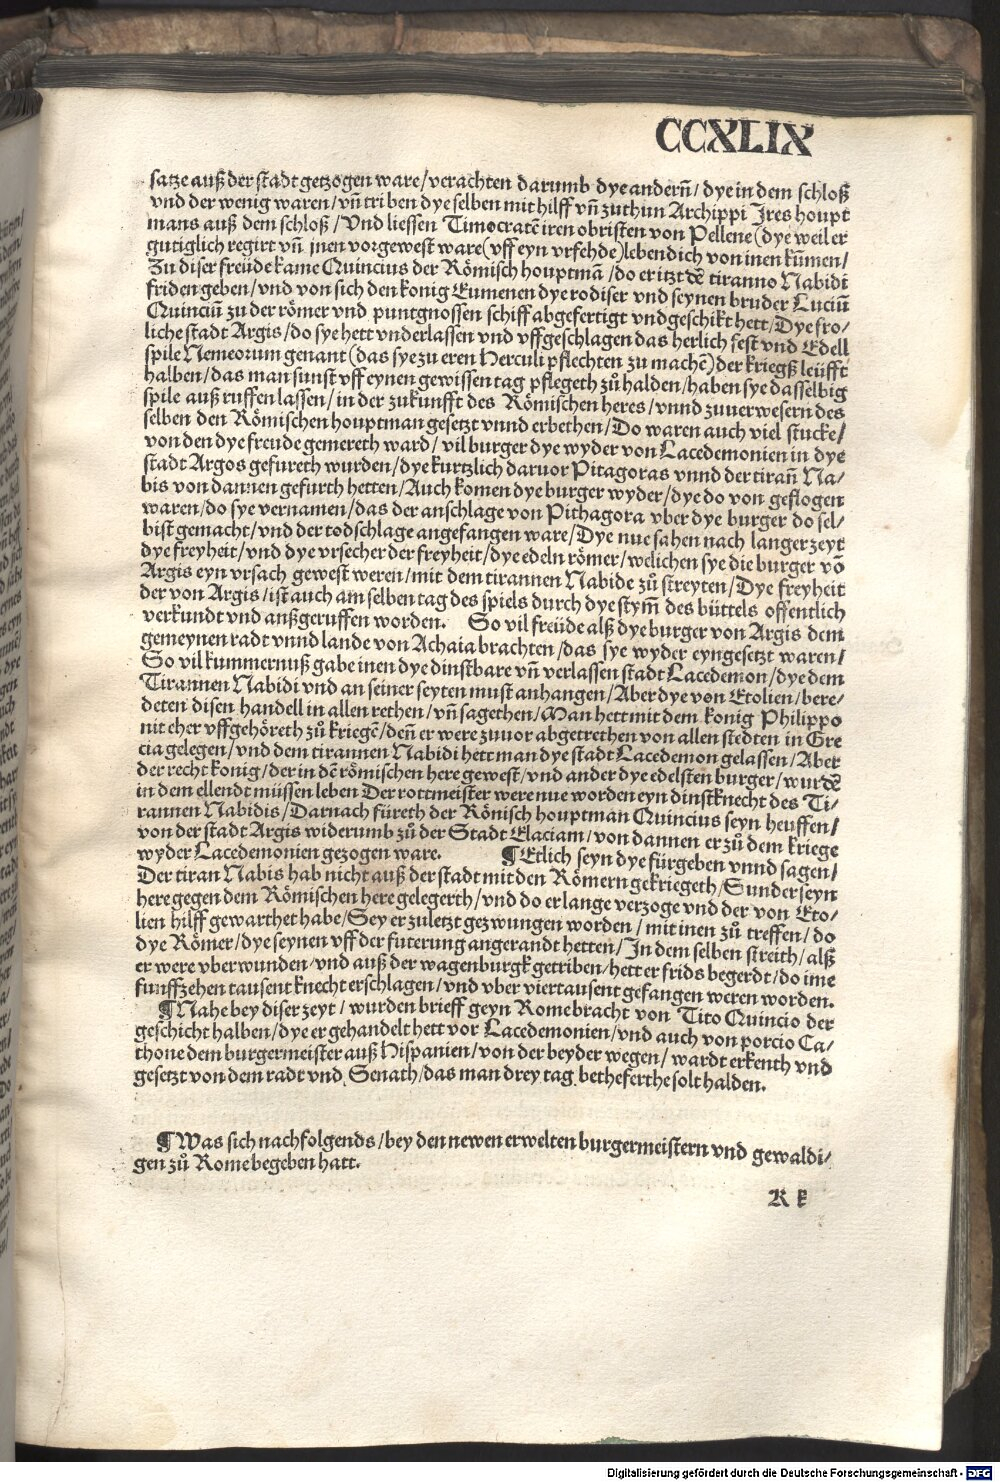 CCXLIX
satze auß der stadt getzogen ware/verachten darumb dye andern̄/dye in dem schloß
vnd der wenig waren/vn̄ triben dye selben mit hilff vn̄ zuthun Archippi Jres houpt
mans auß dem schloß/Vnd liessen Timocratē iren obristen von Pellene(dye weil er
gutiglich regirt vn̄ jnen vorgewest ware(vff eyn vrfehde)lebendich von inen kūmen/
Zu diser freüde kame Quincius der Römisch houptmā/do er itzt dē tiranno Nabidi
friden geben/vnd von sich den konig Eumenen dye rodiser vnd seynen bruder Luciū
Quinciū zu der römer vnd puntgnossen schiff abgefertigt vnd geschikt hett/Dye fro/
liche stadt Argis/do sye hett vnderlassen vnd vffgeschlagen das herlich fest vnd Edell
spile Nemeorum genant(das sye zu eren Herculi pflechten zu machē)der kriegß leüfft
halben/das man sunst vff eynen gewissen tag pflegeth zů halden/haben sye dasselbig
spile auß ruffen lassen/in der zukunfft des Römischen heres/vnnd zuuerwesern des
selben den Römischen houptman gesetzt vnnd erbethen/Do waren auch viel stucke/
von den dye freude gemereth ward/vil burger dye wyder von Lacedemonien in dye
stadt Argos gefureth wurden/dye kurtzlich daruor Pitagoras vnnd der tiran̄ Na/
bis von dannen gefurth hetten/Auch komen dye burger wyder/dye do von geflogen
waren/do sye vernamen/das der anschlage von Pithagora vber dye burger do sel/
bist gemacht/vnd der todschlage angefangen ware/Dye nue sahen nach langer zeyt
dye freyheit/vnd dye vrsecher der freyheit/dye edeln römer/welichen sye die burger vō
Argis eyn vrsach gewest weren/mit dem tirannen Nabide zů streyten/Dye freyheit
der von Argis/ist auch am selben tag des spiels durch dye stym̄ des büttels offentlich
verkundt vnd außgeruffen worden. So vil freüde alß dye burger von Argis dem
gemeynen radt vnnd lande von Achaia brachten/das sye wyder eyngesetzt waren/
So vil kummernuß gabe inen dye dinstbare vn̄ verlassen stadt Lacedemon/dye dem
Tirannen Nabidi vnd an seiner seyten must anhangen/Aber dye von Etolien/bere/
deten disen handell in allen rethen/vn̄ sagethen/Man hett mit dem konig Philippo
nit eher vffgehöreth zů kriegē/den̄ er were zuuor abgetrethen von allen stedten in Gre
cia gelegen/vnd dem tirannen Nabidi hett man dye stadt Lacedemon gelassen/Aber
der recht konig/der in dē römischen here gewest/vnd ander dye edelsten burger/wurdē
in dem ellendt müssen leben Der rottmeister were nue worden eyn dinstknecht des Ti/
rannen Nabidis/Darnach füreth der Römisch houptman Quincius seyn heuffen/
von der stadt Argis widerumb zů der Stadt Elaciam/von dannen er zů dem kriege
wyder Lacedemonien gezogen ware. ¶Etlich seyn dye fürgeben vnnd sagen/
Der tiran Nabis hab nicht auß der stadt mit den Römern gekriegeth/Sunder seyn
here gegen dem Römischen here gelegerth/vnd do er lange verzoge vnd der von Eto/
lien hilff gewarthet habe/Sey er zuletzt gezwungen worden/mit inen zů treffen/do
dye Römer/dye seynen vff der futerung angerandt hetten/In dem selben streith/alß
er were vberwunden/vnd auß der wagenburgk getriben/hett er frids begerdt/do ime
funffzehen tausent knecht erschlagen/vnd vber viertausent gefangen weren worden.
¶Nahe bey diser zeyt/wurden brieff geyn Rome bracht von Tito Quincio der
geschicht halben/dye er gehandelt hett vor Lacedemonien/vnd auch von porcio Ca/
thone dem burgermeister auß Hispanien/von der beyder wegen/wardt erkenth vnd
gesetzt von dem radt vnd Senath/das man drey tag betheferthe solt halden.
¶Was sich nachfolgends/bey den newen erwelten burgermeistern vnd gewaldi/
gen zů Rome begeben hatt.
K k
Digitalisierung gefördert durch die Deutsche Forschungsgemeinschaft - DFG